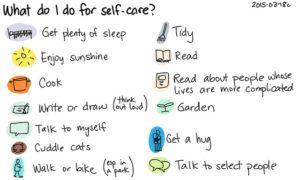 What do I do for self-care?
2015-03-18c
Get plenty of sleep
Enjoy sunshine
Cook
Write or draw (think out loud)
Talk to myself
Cuddle cats
Walk or bike (esp in a park)
Tidy
Read
Read about people whose
lives are more complicated
Garden
Get a hug
Talk to select people